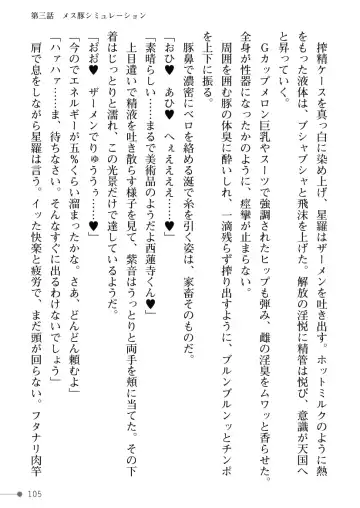 第三話　メス豚シミュレーション
搾精ケースを真っ白に染め上げ、星羅はザーメンを吐き出す。ホットミルクのように熱
をもった液体は、ブシャブシャと飛沫を上げた。解放の淫悦に精管は悦び、意識が天国へ
と昇っていく。
Gカップメロン巨乳やスーツで強調されたヒップも弾み、雌の淫臭をムワッと香らせた。
全身が性器になったかのように、痙攣が止まらない。
周囲を囲む豚の体臭に酔いしれ、一滴残らず搾り出すように、ブルンブルンッとチンポ
を上下に振る。
豚鼻で濃密にベロを絡める涎で糸を引く姿は、家畜そのものだ。
「おひ♥　あひ♥　へぇええええ……♥」
「素晴らしい……まるで美術品のようだよ西蓮寺くん♥」
上目遣いで精液を吐き散らす様子を見て、紫音はうっとりと両手を頬に当てた。その下
着はじっとりと濡れ、この光景だけで達しているようだ。
「おお♥　ザーメンでりゅううう……♥」
「今のでエネルギーが五％くらい溜まったかな。さあ、どんどん頼むよ」
「ハァハァ……ま、待ちなさい。そんなすぐに出るわけないでしょう」
肩で息をしながら星羅は言う。イッた快楽と疲労で、まだ頭が回らない。フタナリ肉竿
105